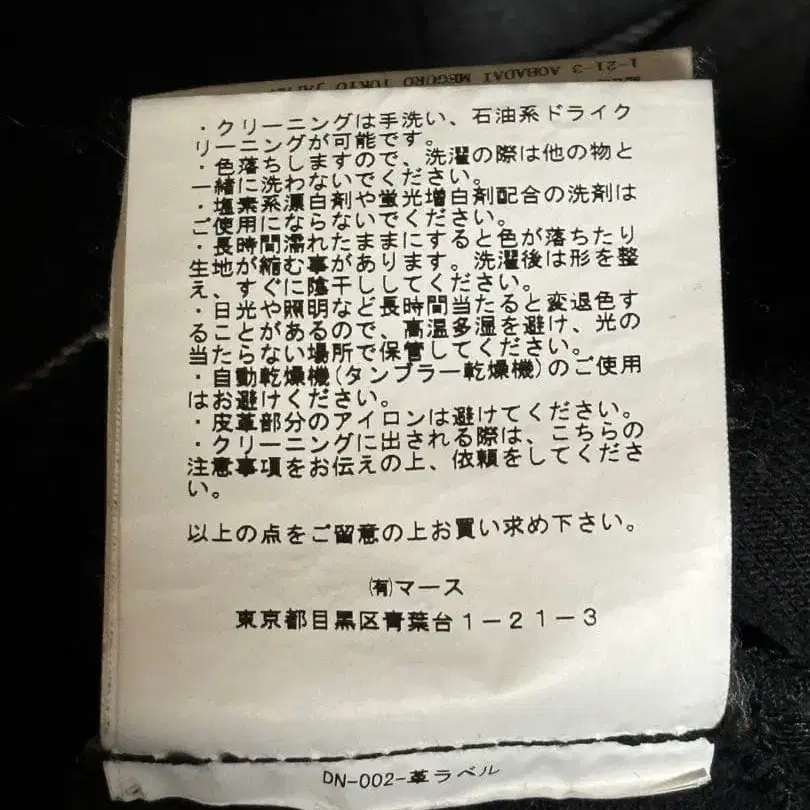 1-21-3 AOBADAI MEGURO TOKYO
・クリーニングは手洗い、石油系ドライク
リーニングが可能です。
・色落ちしますので、洗濯の際は他の物と
一緒に洗わないでください。
・塩素系漂白剤や蛍光増白剤配合の洗剤は
ご使用にならないでください。
・長時間濡れたままにすると色が落ちたり
生地が縮む事があります。洗濯後は形を整
え、すぐに陰干ししてください。
・日光や照明など長時間当たると変退色す
ることがあるので、高温多湿を避け、光の
当たらない場所で保管してください。
・自動乾燥機(タンブラー乾燥機)のご使用
はお避けください。
・皮革部分のアイロンは避けてください。
・クリーニングに出される際は、こちらの
注意事項をお伝えの上、依頼をしてくださ
い。
以上の点をご留意の上お買い求め下さい。
㈲マース
東京都目黒区青葉台1－21－3
DN-002-革ラベル